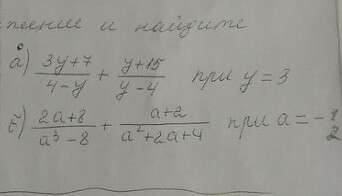 пение и найдите
а) \frac{3y+7}{4-y} + \frac{y+15}{y-4} при y = 3
б) \frac{2a+8}{a^3-8} + \frac{a+2}{a^2+2a+4} при a = -\frac{1}{2}